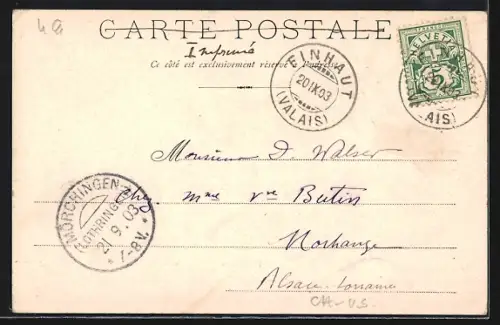 4a
CARTE POSTALE
Imprimé
Ce côté est exclusivement réservé à l'adresse.
FINHAUT
20 IX 03
(VALAIS)
HELVETIA
5
AIS)
Monsieur D. Walser
Chez Mme Vve Butin
Morhange
Alsace-Lorraine
CH-US.
MÖRCHINGEN
(LOTHRINGEN)
21.9.03
7-8V.